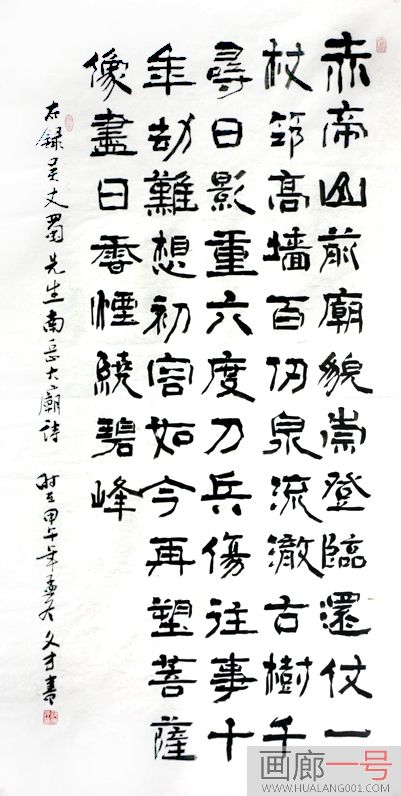 赤帝山前廟貌崇登臨還仗一
杖筇高墻百仞泉流澈古樹千
尋日影重六度刀兵傷往事十
年劫難想初容如今再塑菩薩
像盡日香煙繞碧峰
右錄吴丈蜀先生南岳大廟詩 時在甲午年孟冬 文才書
画廊一号
WWW.HUALANG001.COM